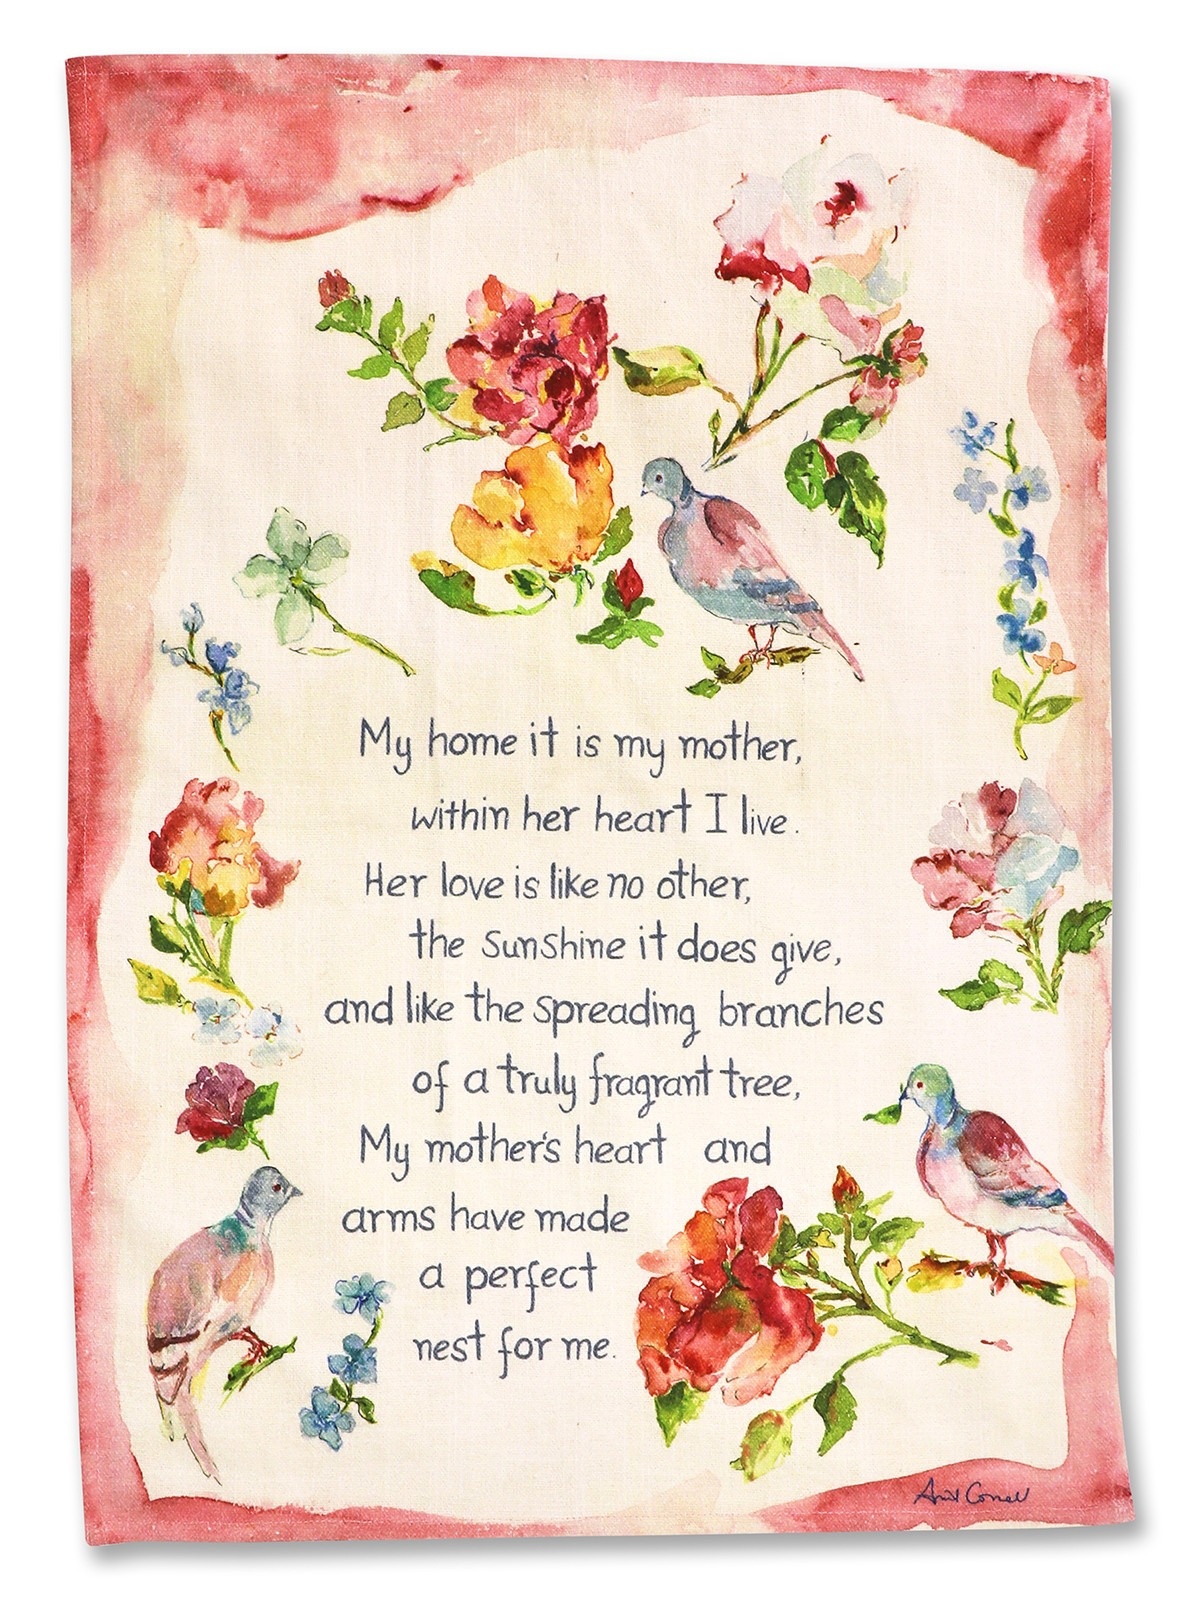 My home it is my mother,
within her heart I live.
Her love is like no other,
the sunshine it does give,
and like the spreading branches
of a truly fragrant tree,
My mother's heart and
arms have made
a perfect
nest for me.